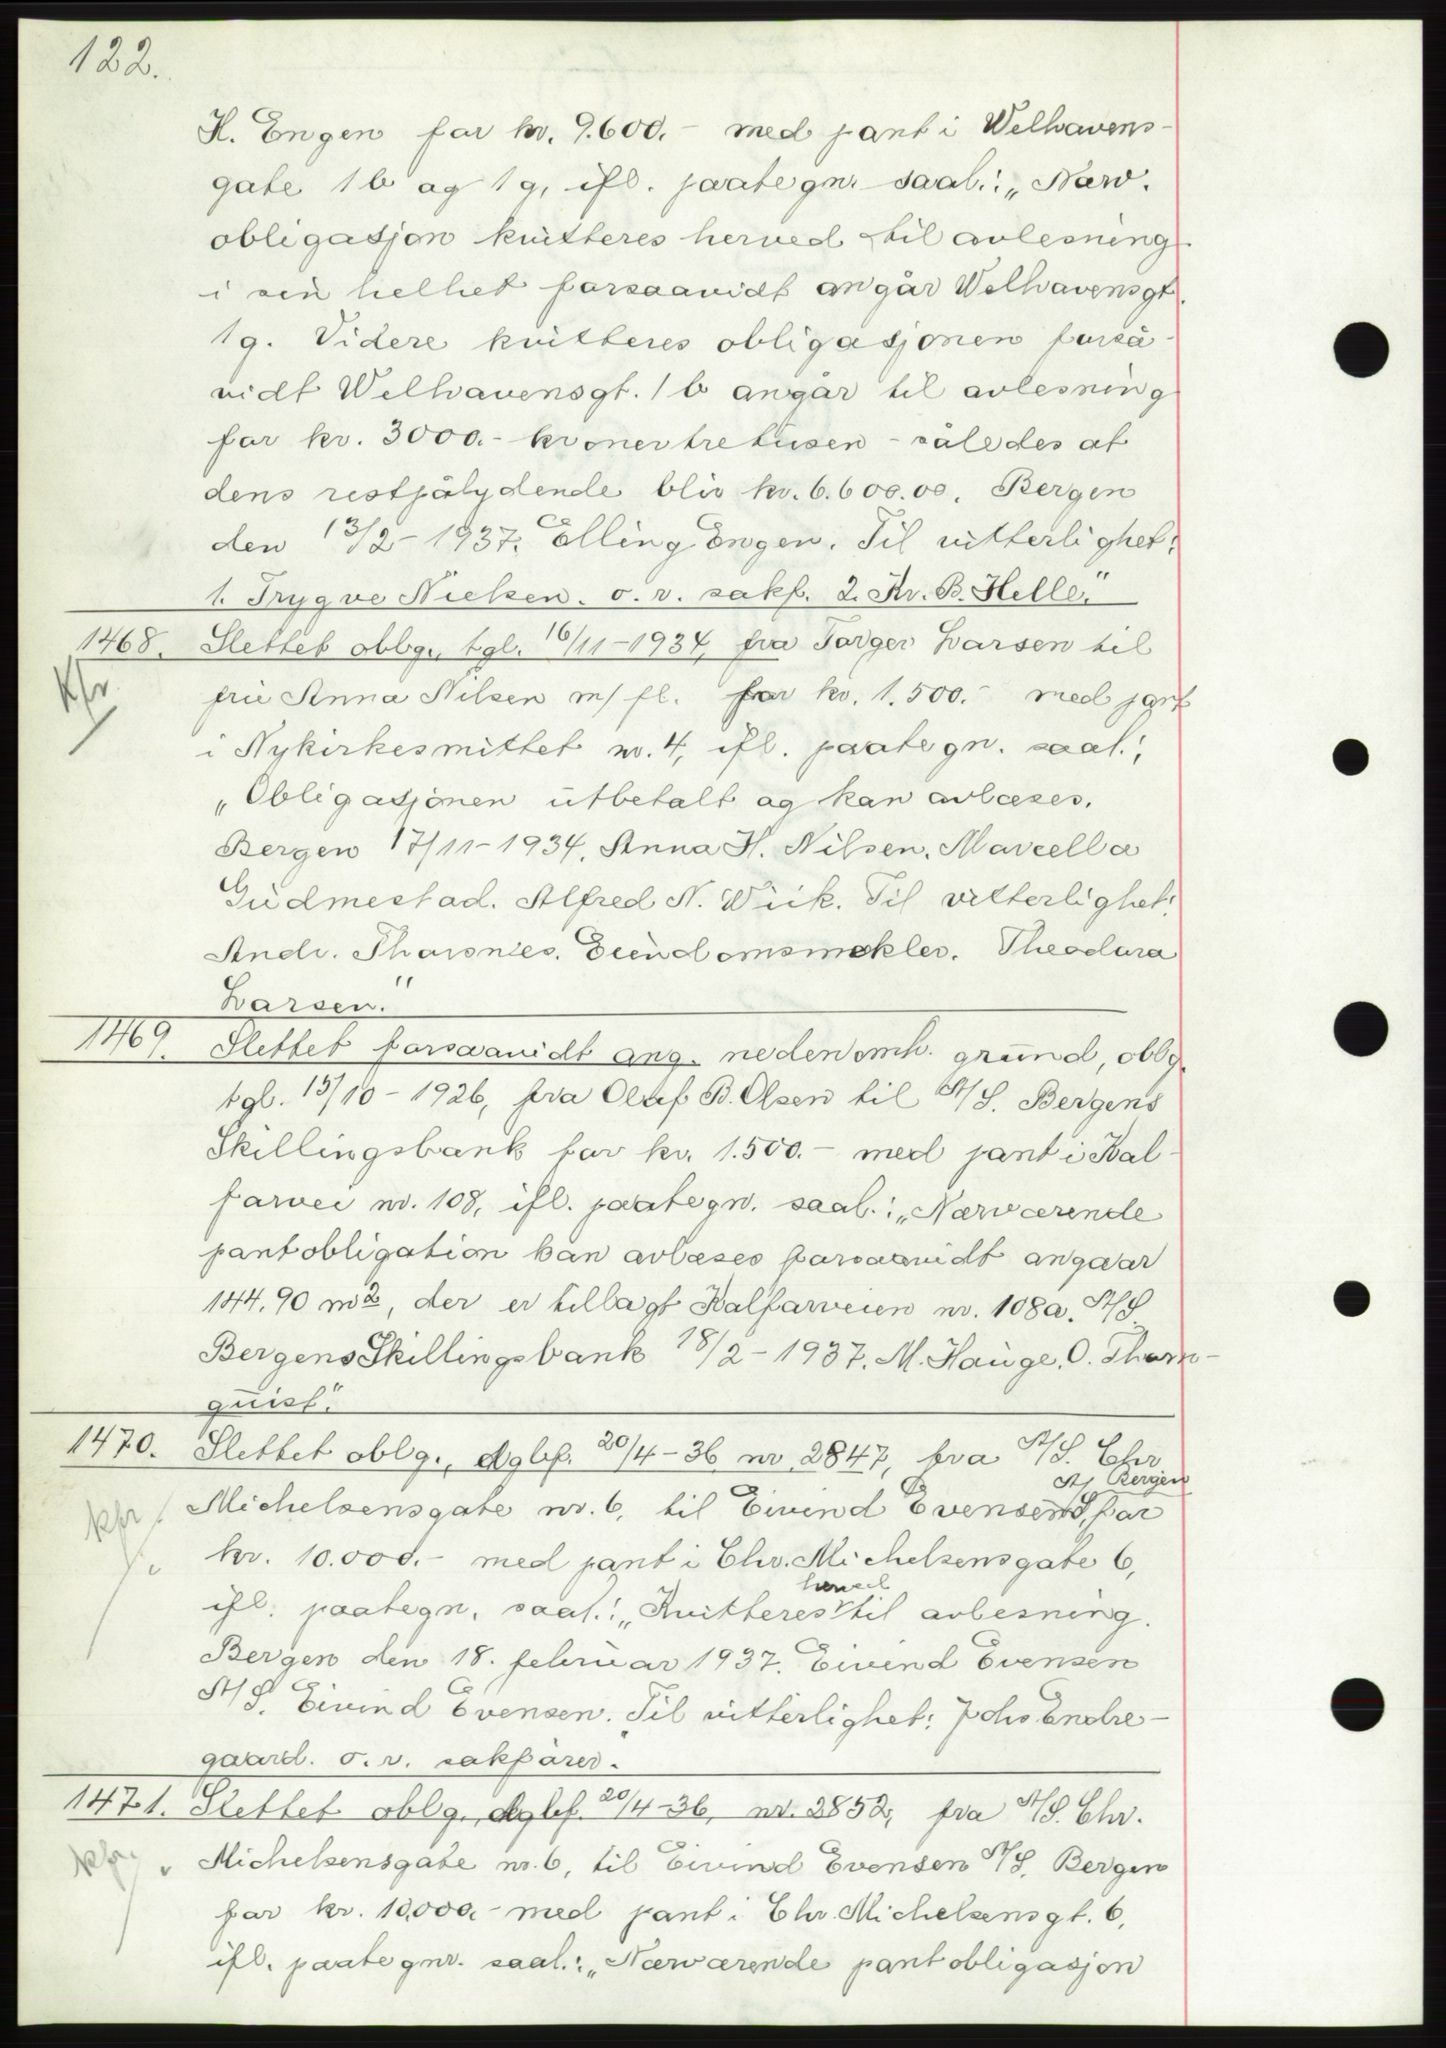 122.
H. Engen for kr. 9.600.- med pant i Welhavens-
gate 1 b og 1 g, ifl. paategn. saal.: „Nærv.
obligasjon kvitteres herved til avlesning
i sin helhet forsaavidt angår Welhavensgt.
1 g. Videre kvitteres obligasjonen forså-
vidt Welhavensgt. 1 b angår til avlesning
for kr. 3000.- kroner tretusen - således at
dens restpålydende blir kr. 6.600.00. Bergen
den 13/2-1937. Elling Engen. Til vitterlighet:
1. Trygve Nielsen. o. r. sakf. 2. Kr. B. Helle."
1468. Slettet oblg., tgl. 16/11-1934, fra Torger Larsen til
Kfr.
fru Anna Nilsen m/fl. for kr. 1.500.- med pant
i Nykirkesmittet nr. 4, ifl. paategn. saal.:
„Obligasjonen utbetalt og kan avlæses.
Bergen 17/11-1934. Anna H. Nilsen. Marcella
Gudmestad. Alfred N. Wiik. Til vitterlighet:
Andr. Thorsnes. Eiendomsmekler. Theodora
Larsen."
1469. Slettet forsaavidt ang. nedenomh. grund, oblg.
tgl. 15/10-1926, fra Oluf B. Olsen til A/S. Bergens
Skillingsbank for kr. 1.500.- med pant i Kal-
farvei nr. 108, ifl. paategn. saal.: „Nærværende
pantobligation kan avlæses forsaavidt angaar
144.90 m2, der er tillagt Kalfarveien nr. 108a. A/S
Bergens Skillingsbank 18/2-1937. M. Hauge. O. Thorn-
quist."
1470. Slettet oblg., dgbf. 20/4-36 nr. 2847, fra A/S. Chr
A/ Bergen
kfr
Michelsensgate nr. 6, til Eivind Evensen S, for
kr. 10.000.- med pant i Chr. Michelsensgate 6,
herved
ifl. paategn. saal.: „Kvitteres til avlesning.
Bergen den 18. februar 1937. Eivind Evensen
A/S. Eivind Evensen. Til vitterlighet: Johs Endre-
gaard. o. r. sakfører.
1471. Slettet oblg., dgbf. 20/4-36, nr. 2852, fra A/S. Chr.
kfr.
Michelsensgate nr. 6, til Eivind Evensen A/S. Bergen
for kr. 10.000.- med pant i Chr. Michelsensgt. 6,
ifl. paategnr. saal.: „Nærværende pantobligasjon